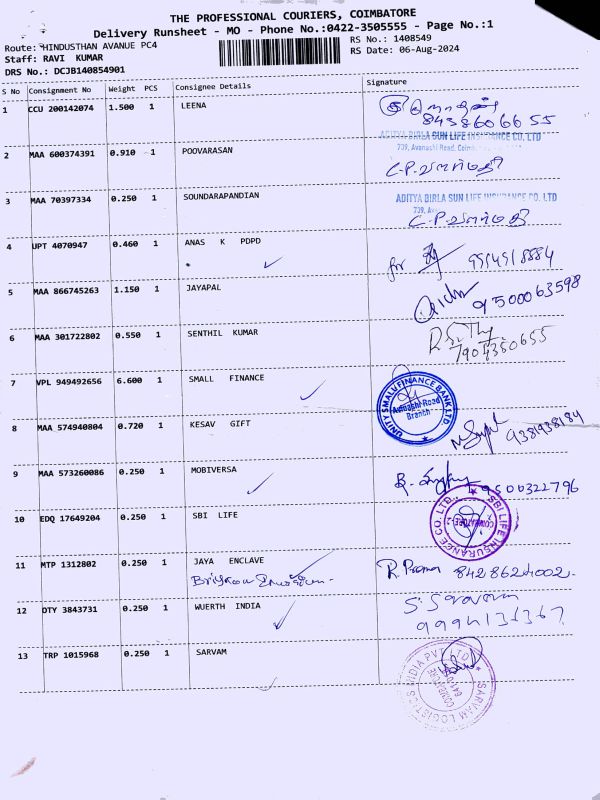 THE PROFESSIONAL COURIERS, COIMBATORE
Delivery Runsheet - MO - Phone No.:0422-3505555 - Page No.:1
Route: HINDUSTHAN AVANUE PC4
RS No.: 1408549
Staff: RAVI KUMAR
RS Date: 06-Aug-2024
DRS No.: DCJB140854901
S No Consignment No Weight PCS Consignee Details Signature
1 CCU 200142074 1.500 1 LEENA
8438606655
ADITYA BIRLA SUN LIFE INSURANCE CO. LTD
739, Avanashi Road, Coim
2 MAA 600374391 0.910 1 POOVARASAN
3 MAA 70397334 0.250 1 SOUNDARAPANDIAN
ADITYA BIRLA SUN LIFE INSURANCE CO. LTD
739, Av
4 UPT 4070947 0.460 1 ANAS K PDPD
for
5 MAA 866745263 1.150 1 JAYAPAL
9500063598
6 MAA 301722802 0.550 1 SENTHIL KUMAR
7904350655
7 VPL 949492656 6.600 1 SMALL FINANCE
UNITY SMALL FINANCE BANK LTD
Avinashi Road
Branch
8 MAA 574940804 0.720 1 KESAV GIFT
9381938184
9 MAA 573260086 0.250 1 MOBIVERSA
9500322796
10 EDQ 17649204 0.250 1 SBI LIFE
SBI LIFE INSURANCE CO. LTD.
11 MTP 1312802 0.250 1 JAYA ENCLAVE
8428624002
12 DTY 3843731 0.250 1 WUERTH INDIA
S. Saravanan
9994131367
13 TRP 1015968 0.250 1 SARVAM
SARVAM LOGISTICS INDIA PVT LTD